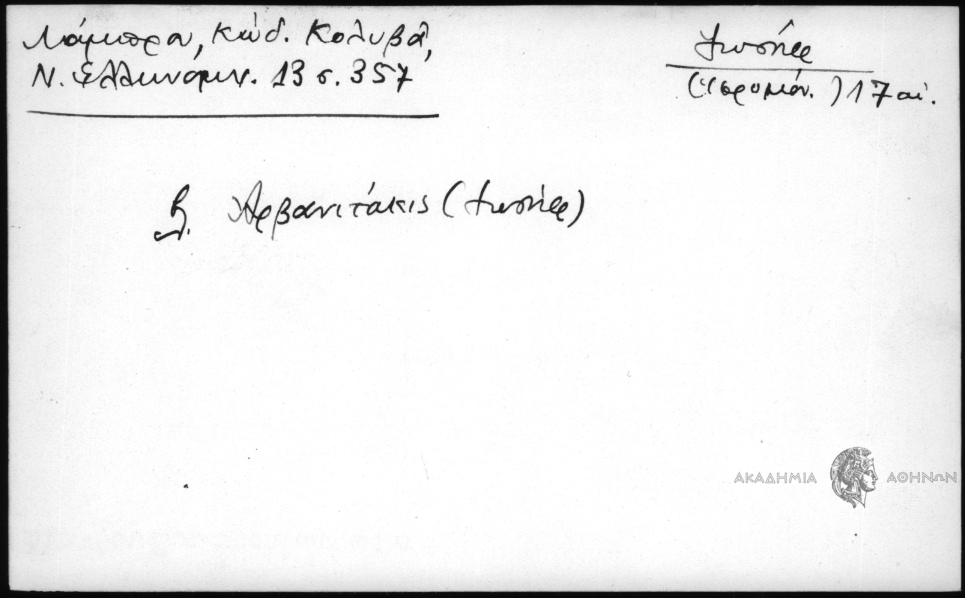 Λάμπρου, Κώδ. Κολυβᾶ,
Ν. Ἑλληνομν. 13 σ. 357
Ἰωσήφ
(Ἱερομόν.) 17 αἰ.
βλ. Ἀρβανιτάκις (Ἰωσήφ)
ΑΚΑΔΗΜΙΑ ΑΘΗΝΩΝ